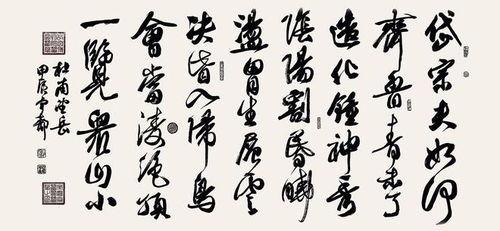 岱宗夫如何
齊魯青未了
造化鍾神秀
陰陽割昏曉
盪胷生層雲
決眥入歸鳥
會當凌絕頂
一覽眾山小
杜甫望岳
甲辰